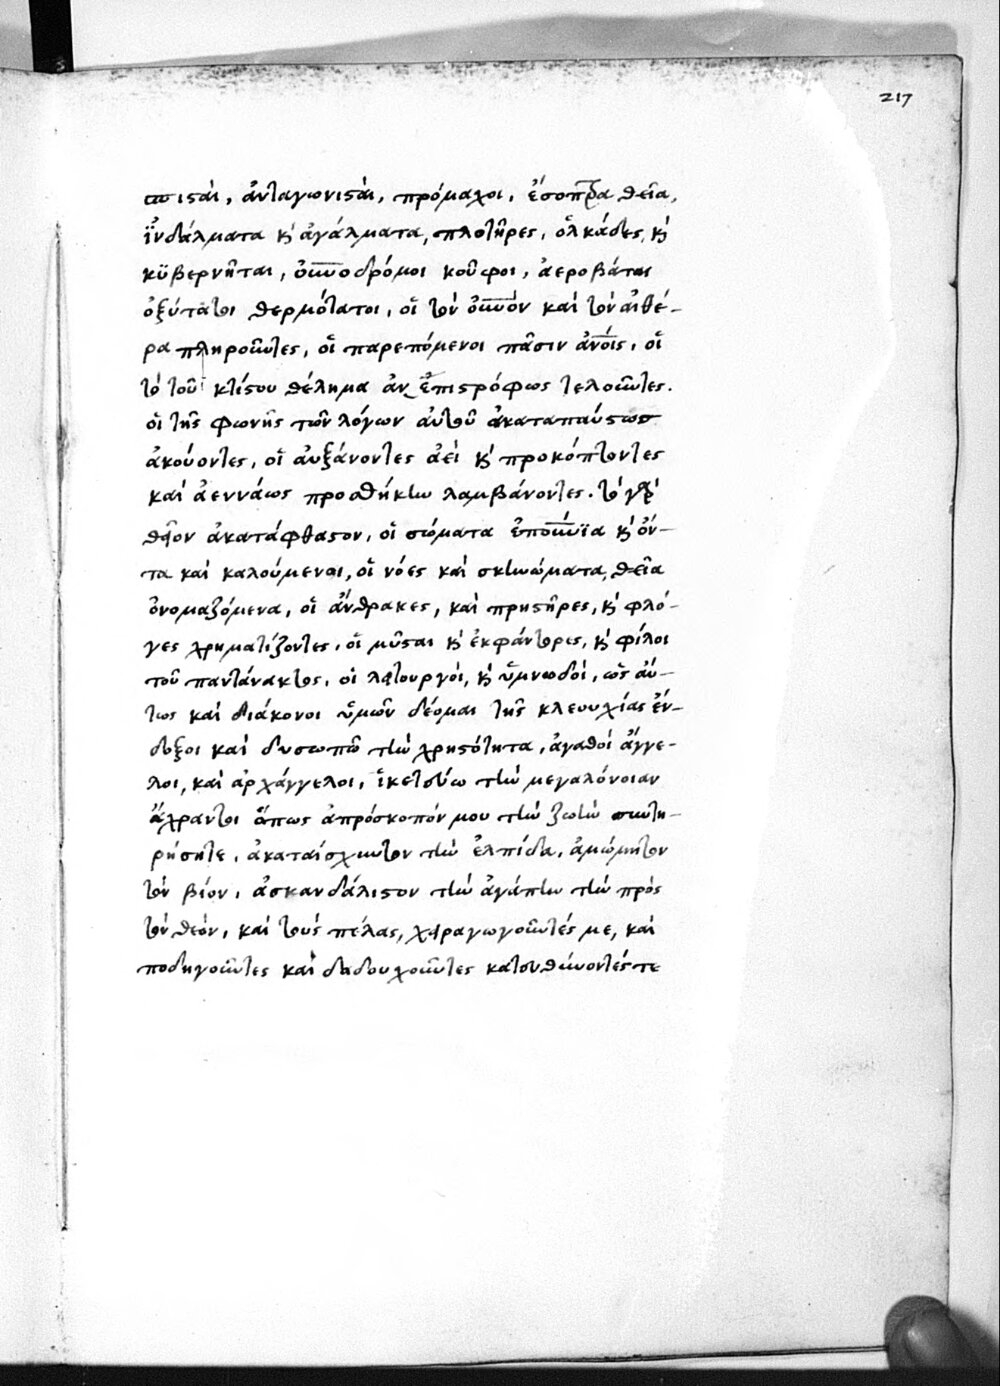 217
πισταὶ, ἀνταγωνισταὶ, πρόμαχοι, ἔσοπτρα θεῖα,
ἰνδάλματα κ̀ ἀγάλματα, πλοτῆρες, ὁλκάδες, κ̀
κϋβερνῆται, οὐνοδρόμοι κοῦφοι, ἀεροβάται
ὀξύτατοι θερμότατοι, οἳ τὸν οὐνὸν καὶ τὸν αἰθέ-
ρα πληροῦντες, οἳ παρεπόμενοι πᾶσιν ἀνοῖς, οἳ
τὸ τοῦ κτίστου θέλημα ἀνεπιστρόφως τελοῦντες.
οἱ τῆς φωνῆς τῶν λόγων αὐτοῦ ἀκαταπαύστως
ἀκούοντες, οἳ αὐξάνοντες ἀεὶ κ̀ προκόπτοντες
καὶ ἀεννάως προσθήκην λαμβάνοντες. τὸ γὰρ
θεῖον ἀκατάφθαστον, οἳ σώματα ἐπουνϊα κ̀ ὄν-
τα καὶ καλούμενοι, οἳ νόες καὶ σκηνώματα, θεῖα
ὀνομαζόμενα, οἳ ἄνθρακες, καὶ πρηστῆρες, κ̀ φλό-
γες χρηματίζοντες, οἳ μῦσται κ̀ ἐκφάντορες, κ̀ φίλοι
τοῦ παντάνακτος, οἱ λειτουργοὶ, κ̀ ὑμνωδοὶ, ὡσαύ-
τως καὶ διάκονοι ὑμῶν δέομαι τῆς κλεουχίας ἔν-
δοξοι καὶ δυσωπῶ τὴν χρηστότητα, ἀγαθοὶ ἄγγε-
λοι, καὶ ἀρχάγγελοι, ἱκετεύω τὴν μεγαλόνοιαν
ἄχραντοι ὅπως ἀπρόσκοπόν μου τὴν ζωὴν συντη-
ρήσητε, ἀκαταίσχυντον τὴν ἐλπίδα, ἀμώμητον
τὸν βίον, ἀσκανδάλιστον τὴν ἀγάπην τὴν πρὸς
τὸν θεὸν, καὶ τοὺς πέλας, χειραγωγοῦντές με, καὶ
ποδηγοῦντες καὶ δαδουχοῦντες κατευθύνοντές τε